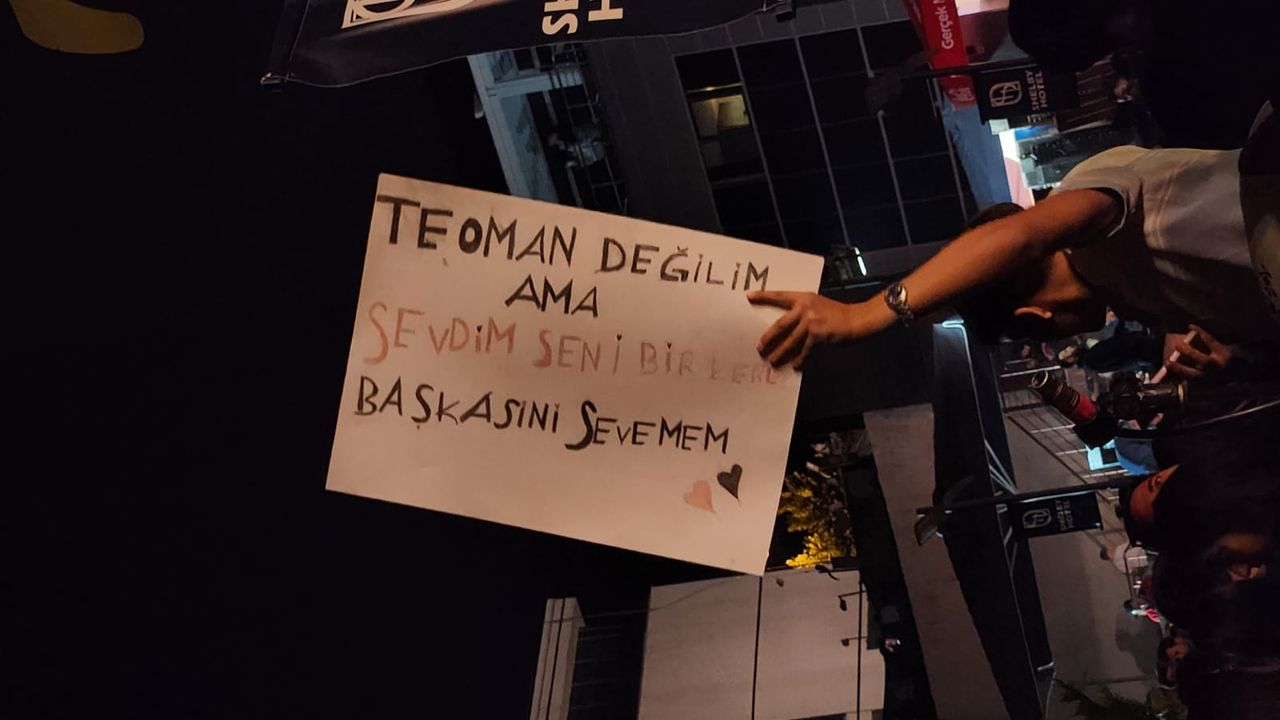 TEOMAN DEĞİLİM
AMA
SEVDİM SENİ BİR KERE
BAŞKASINI SEVEMEM
Gerçek
SHELBY
HOTEL
SHELBY
HOTEL
SH
H